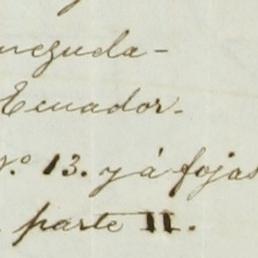 neguda-
Ecuador.
Nº 13. y á fojas
parte II.